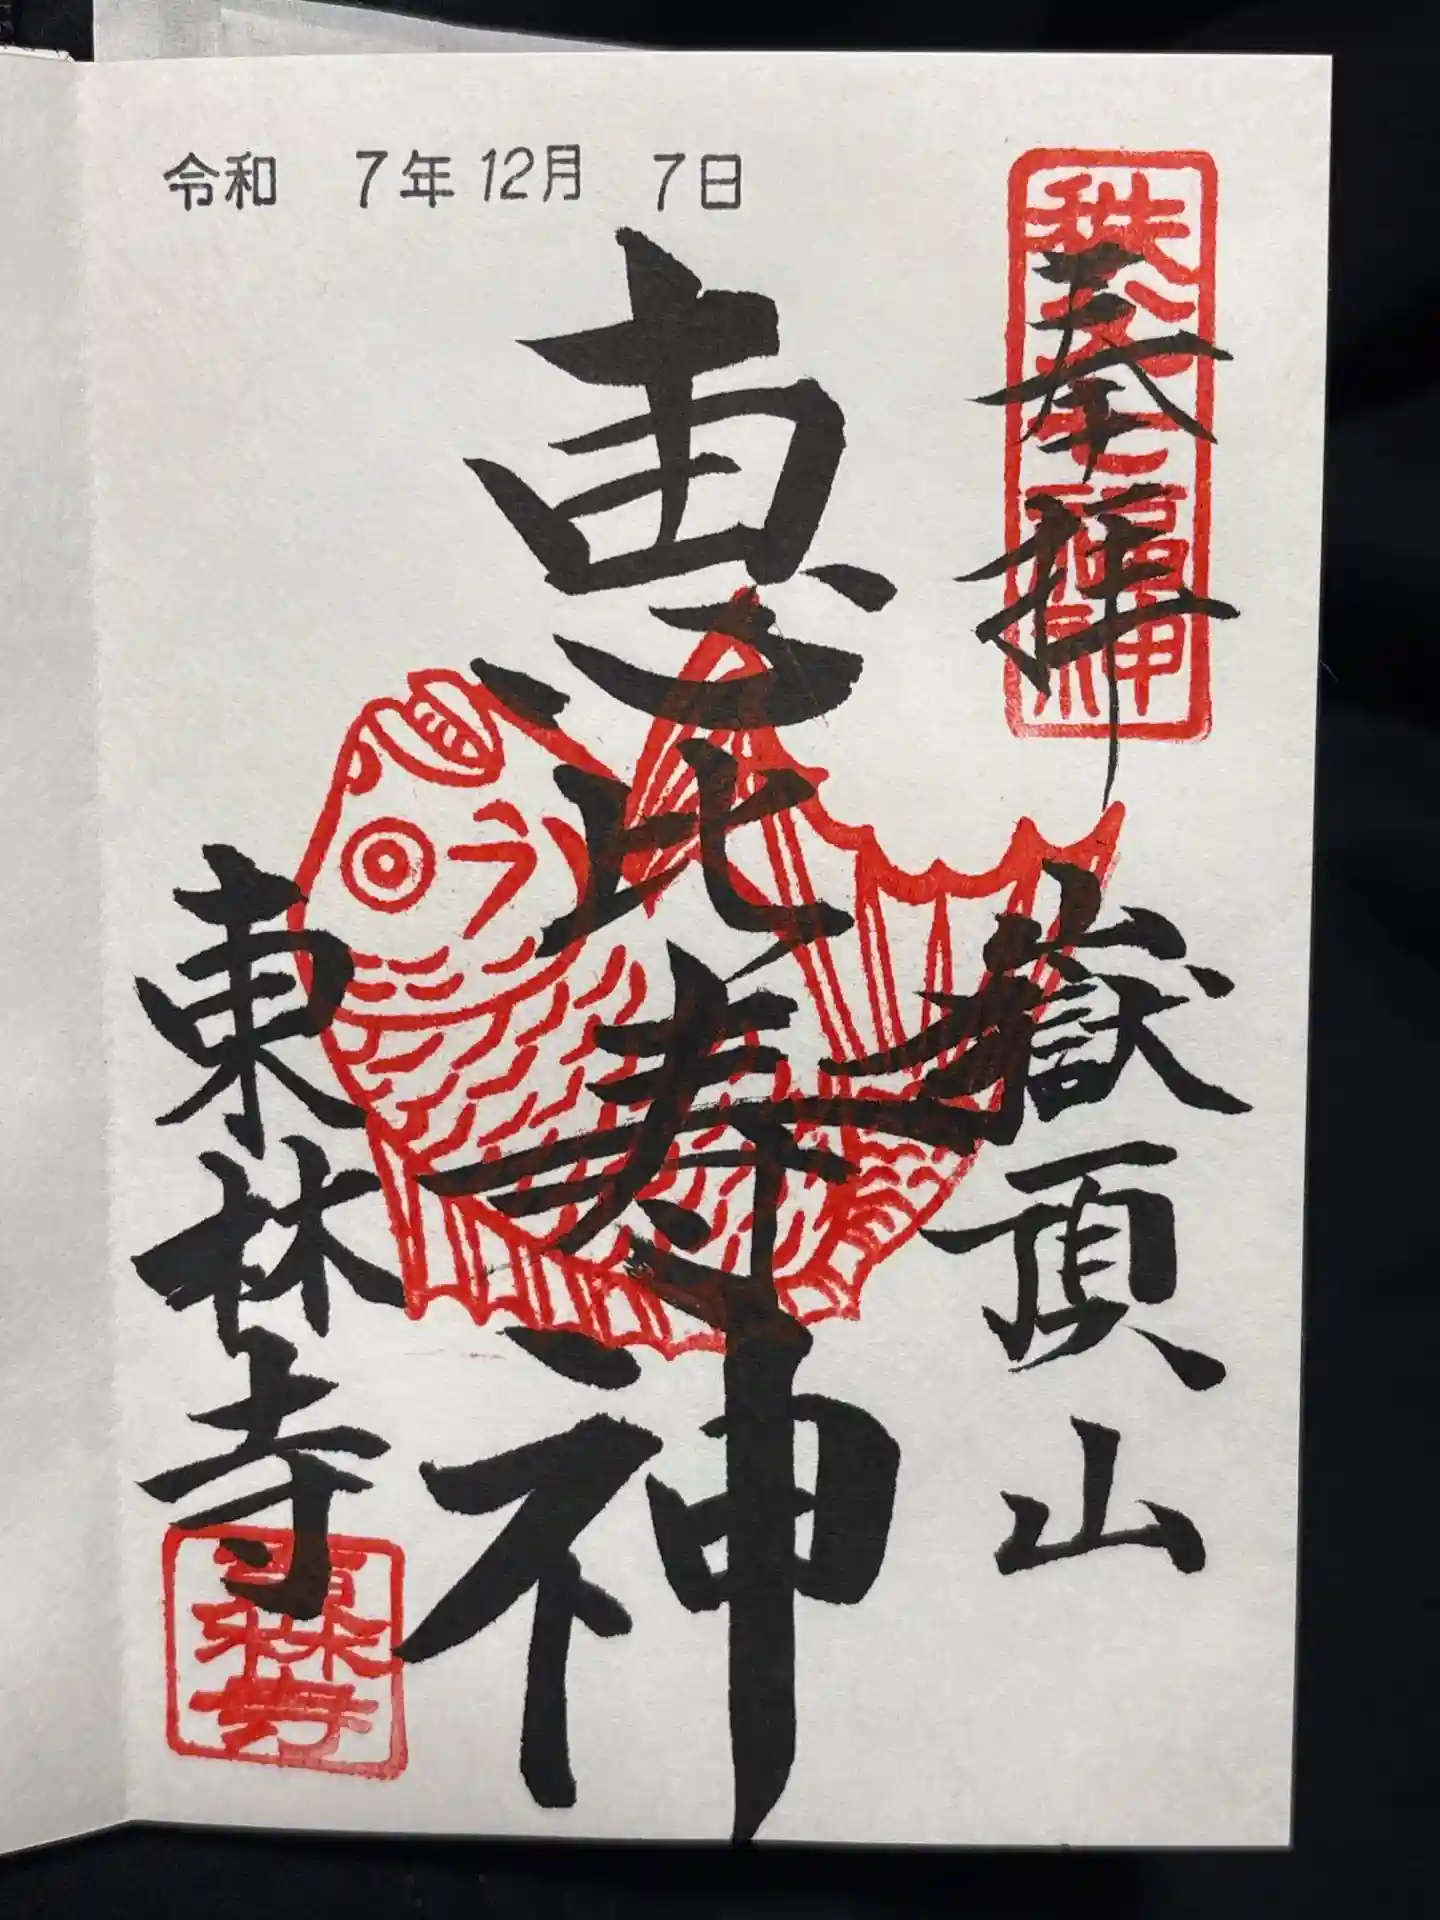 令和 7年12月 7日
秩父七福神
奉拝
嶽頂山
恵比寿神
東林寺
東林寺